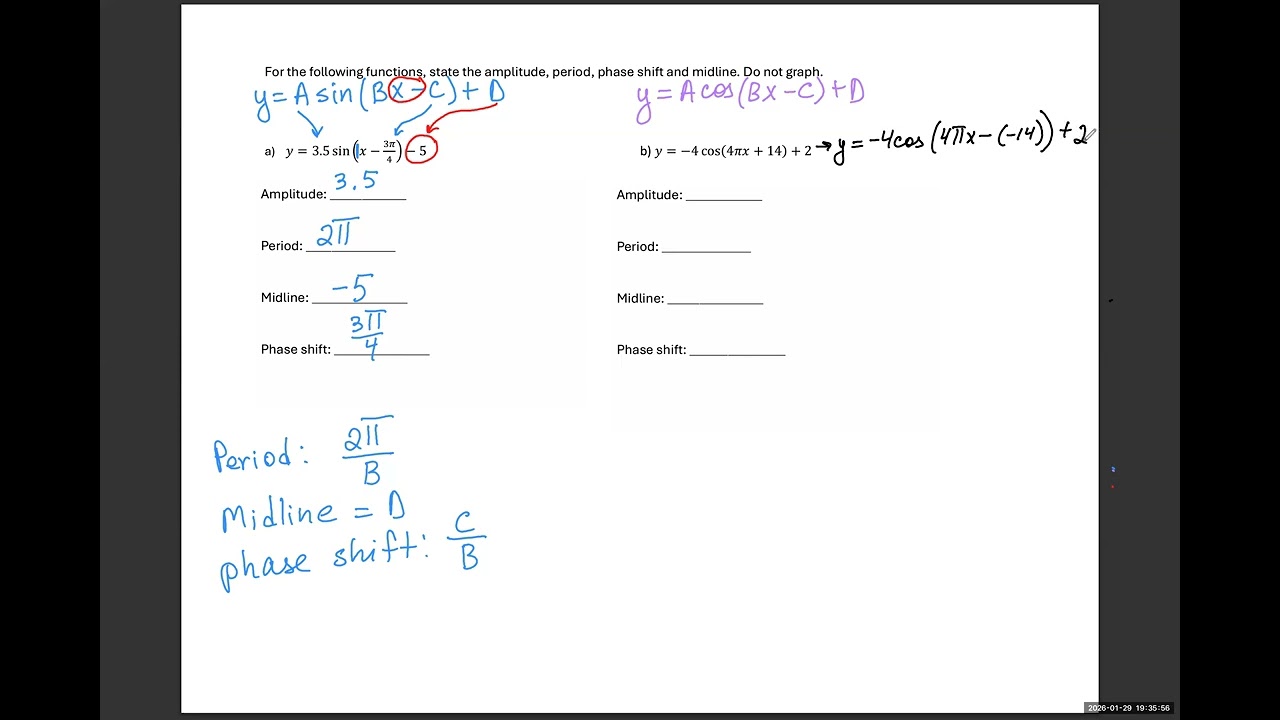 For the following functions, state the amplitude, period, phase shift and midline. Do not graph.
y = A sin(Bx − C) + D
y = A cos(Bx − C) + D
a) y = 3.5 sin(1x − 3π/4) − 5
b) y = −4 cos(4πx + 14) + 2 → y = −4cos(4πx − (−14)) + 2
Amplitude: 3.5
Period: 2π
Midline: −5
Phase shift: 3π/4
Amplitude: ___________
Period: ______________
Midline: _______________
Phase shift: _______________
Period: 2π/B
Midline = D
phase shift: C/B
2026-01-29 19:35:56